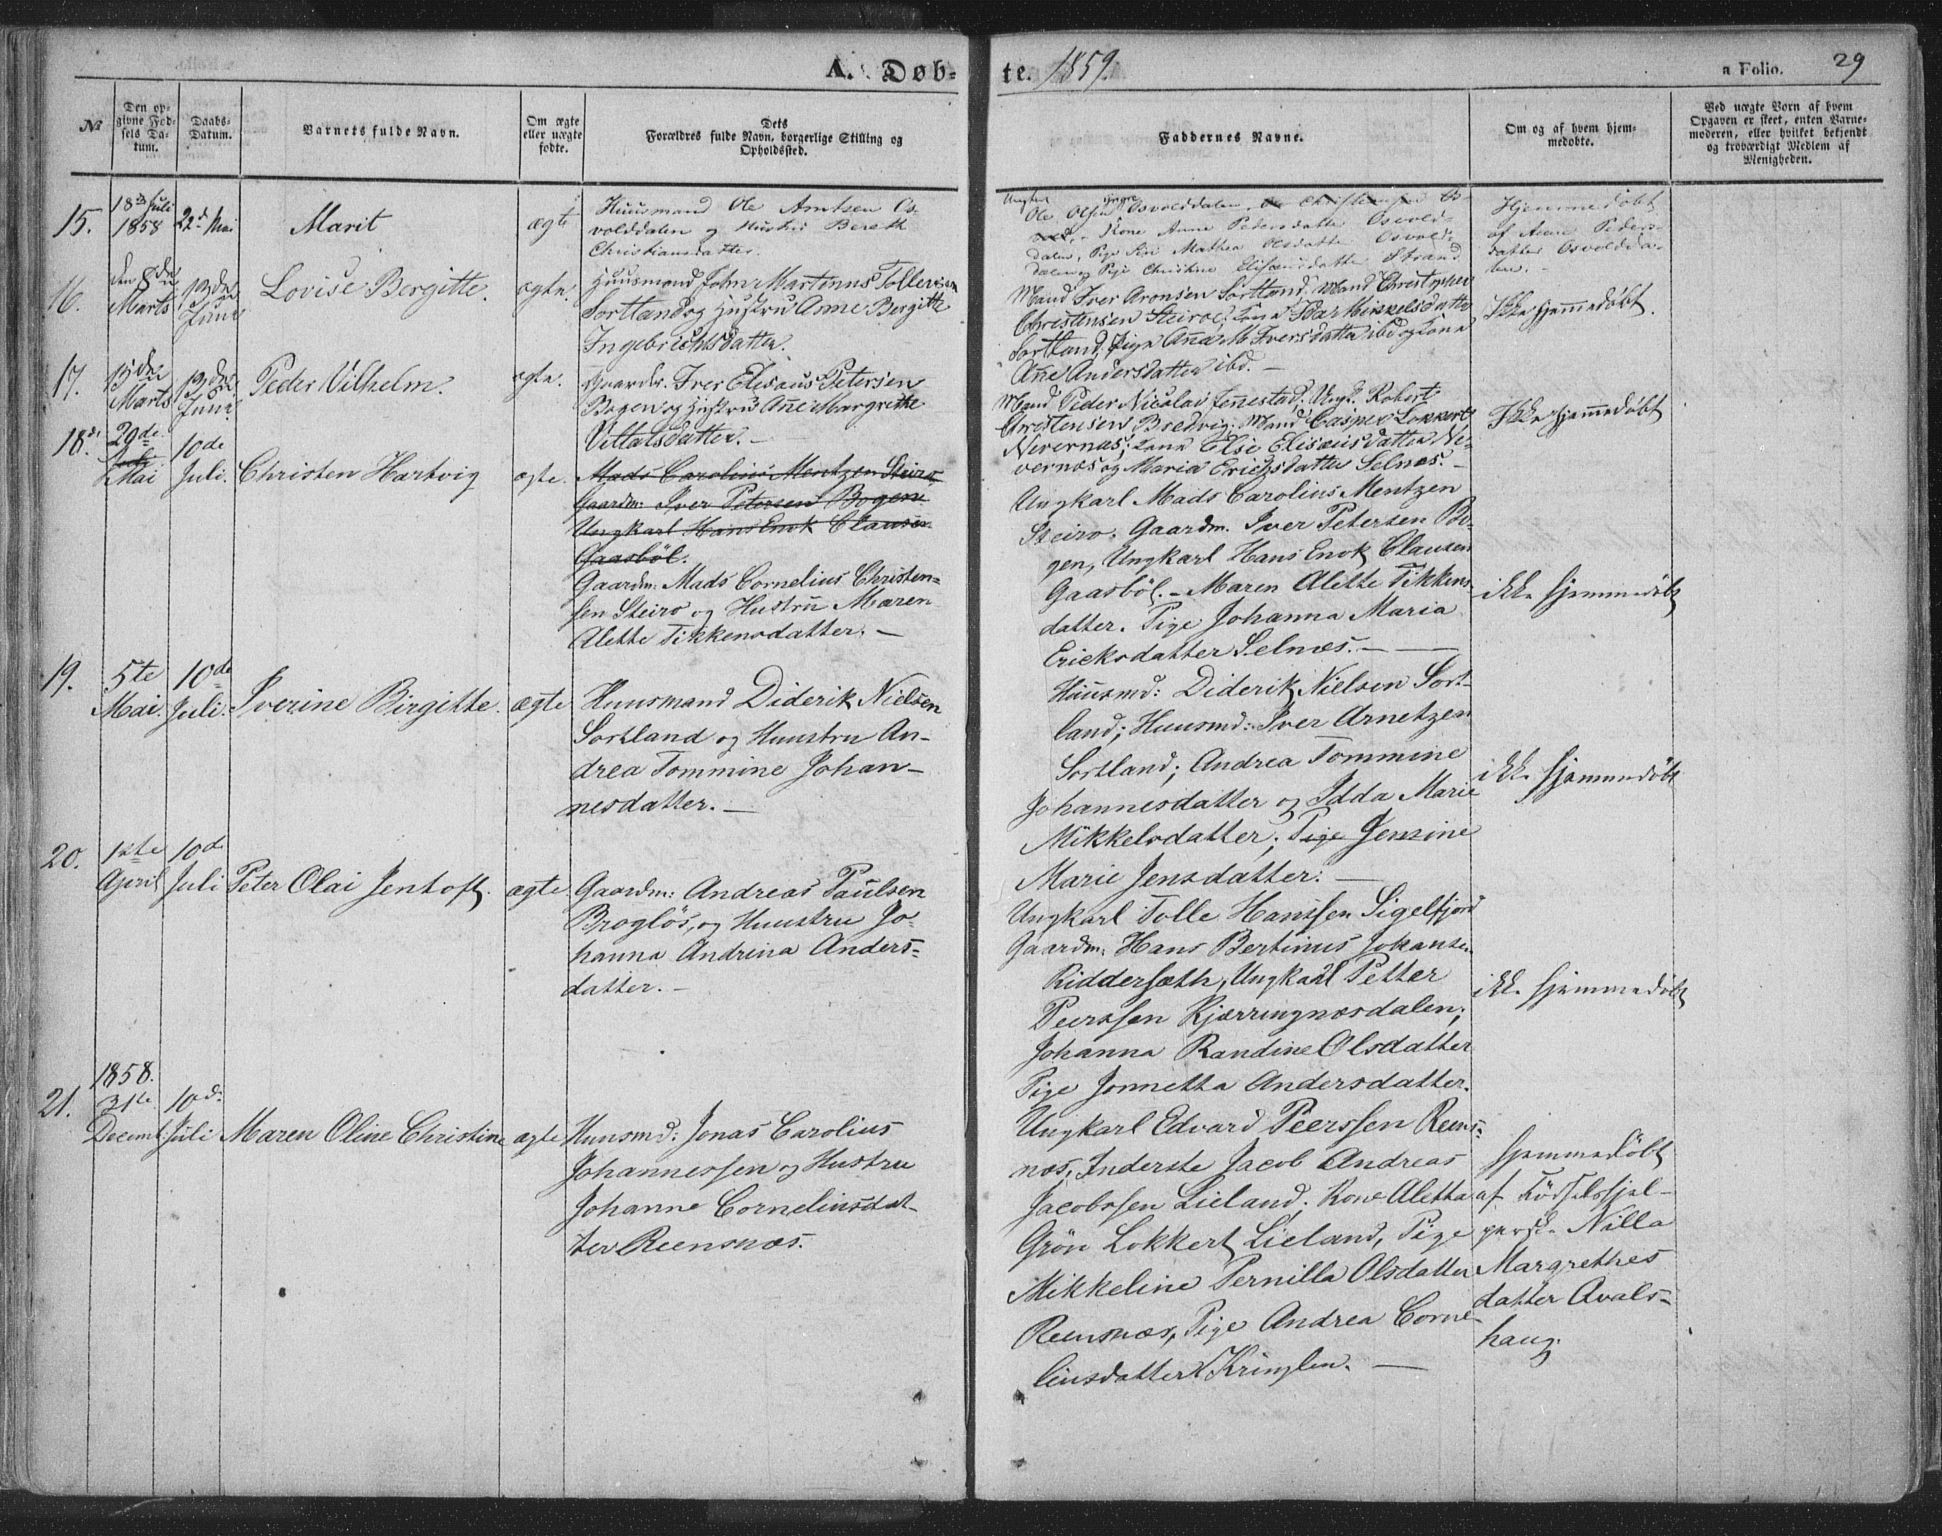 A. Døb-
te. 1859.
a Folio. 29
No
Den op-
givne Fød-
sels Da-
tum.
Daabs-
Datum.
Barnets fulde Navn.
Om ægte
eller uægte
fødte.
Dets
Forældres fulde Navn, borgerlige Stilling og
Opholdssted.
Faddernes Navne.
Om og af hvem hjem-
medøbte.
Ved uægte Børn af hvem
Opgaven er skeet, enten Barne-
moderen, eller hvilket bekjendt
og troværdigt Medlem af
Menigheden.
15.
18de Juli
1858
22de Mai
Marit
ægte
Huusmand Ole Arntsen Os-
volddalen og Hustru Bereth
Christiansdatter.
Ole Olsen Osvolddalen,
Kone Anne Pedersdatter Osvold-
dalen, Pige Mathea Olsdatter Osvold-
dalen og Pige Christine Elisæusdatter Strand
Hjemmedøbt
af Anne Peders-
datter Osvoldda-
len.
16.
den 8de
Marts
13de
Juni
Lovise Bergitte.
ægte.
Huusmand John Martinus Tollevsen
Sortland og Hustru Anne Bergitte
Ingebrichtsdatter.
Mand Iver Aronsen Sortland; Mand Christopher
Christensen Steiroe; Kone Mikkelsdatter
Sortland, Pige Ane M. Iversdatter ibd og Kone
Ane Andersdatter ibd. —
Ikke hjemmedøbt.
17.
15de
Marts
13de
Juni
Peder Vilhelm.
ægte.
Gaardbr. Iver Elisæus Petersen
Bogen og Hustru Ane Margrethe
Vittalsdatter. —
Mand Peder Nicolai Jennestad; Ungk. Robert
Christensen Bredvig; Mand Casper Lokkert
Nevernæs; Kone Else Elisæusdatter Ne-
vernæs og Maria Erichsdatter Selnæs. —
Ikke hjemmedøbt
18.
29de
Mai
10de
Juli.
Christen Hartvig
ægte.
Mads Carolius Mentzen Steiro,
Gaardm: Iver Petersen Bogen
Ungkarl Hans Enok Clausen
Gaasböl.
Gaardm: Mads Cornelius Christen-
sen Steiro og Hustru Maren
Alette Tikkensdatter. —
Ungkarl Mads Carolius Mentzen
Steiro, Gaardm. Iver Petersen Bo-
gen, Ungkarl Hans Enok Clausen
Gaasböl. – Maren Alette Tikkens
datter. Pige Johanna Maria
Ericksdatter Selnæs. —
ikke hjemmedöbt
19.
5te
Mai.
10de
Juli.
Iverine Birgitte.
ægte
Huusmand Diderik Nielsen
Sortland og Huustru An-
drea Tommine Johan-
nesdatter. —
Huusmd: Diderik Nielsen Sort-
land; Huusmd: Iver Arnetzen
Sortland; Andrea Tommine
Johannesdatter og Idda Marie
Mikkelsdatter; Pige Jensine
Marie Jensdatter. —
ikke hjemmedöbt
20.
1ste
April
10de
Juli
Peter Olai Jentoft.
ægte
Gaardm: Andreas Paulsen
Brogløs, og Huustru Jo-
hanna Andrina Anders-
datter. —
Ungkarl Tolle Hanssen Sigelfjord
Gaardm: Hans Bertinus Johansen
Riddersæth, Ungkarl Petter
Peerssen Kjærringnæsdalen;
Johanna Randine Olsdatter
Pige Jonnetta Andersdatter.
ikke hjemmedöbt
21.
1858.
31te
Decemb.
10de
Juli
Maren Oline Christine
ægte
Huusmd: Jonas Carolius
Johannessen og Hustru
Johanne Corneliusdat-
ter Reensnæs.
Ungkarl Edvard Peerssen Reens-
næs, Inderste Jacob Andreas
Jacobssen Lieland; Kone Aletta
Grön Lokkert Lieland, Pige
Mikkeline Pernilla Olsdatter
Reensnæs, Pige Andrea Corne-
liusdatter Kringlen. —
hjemmedöbt
af Födselshjel-
persk. Nilla
Margrethes
datter Avals-
haug.